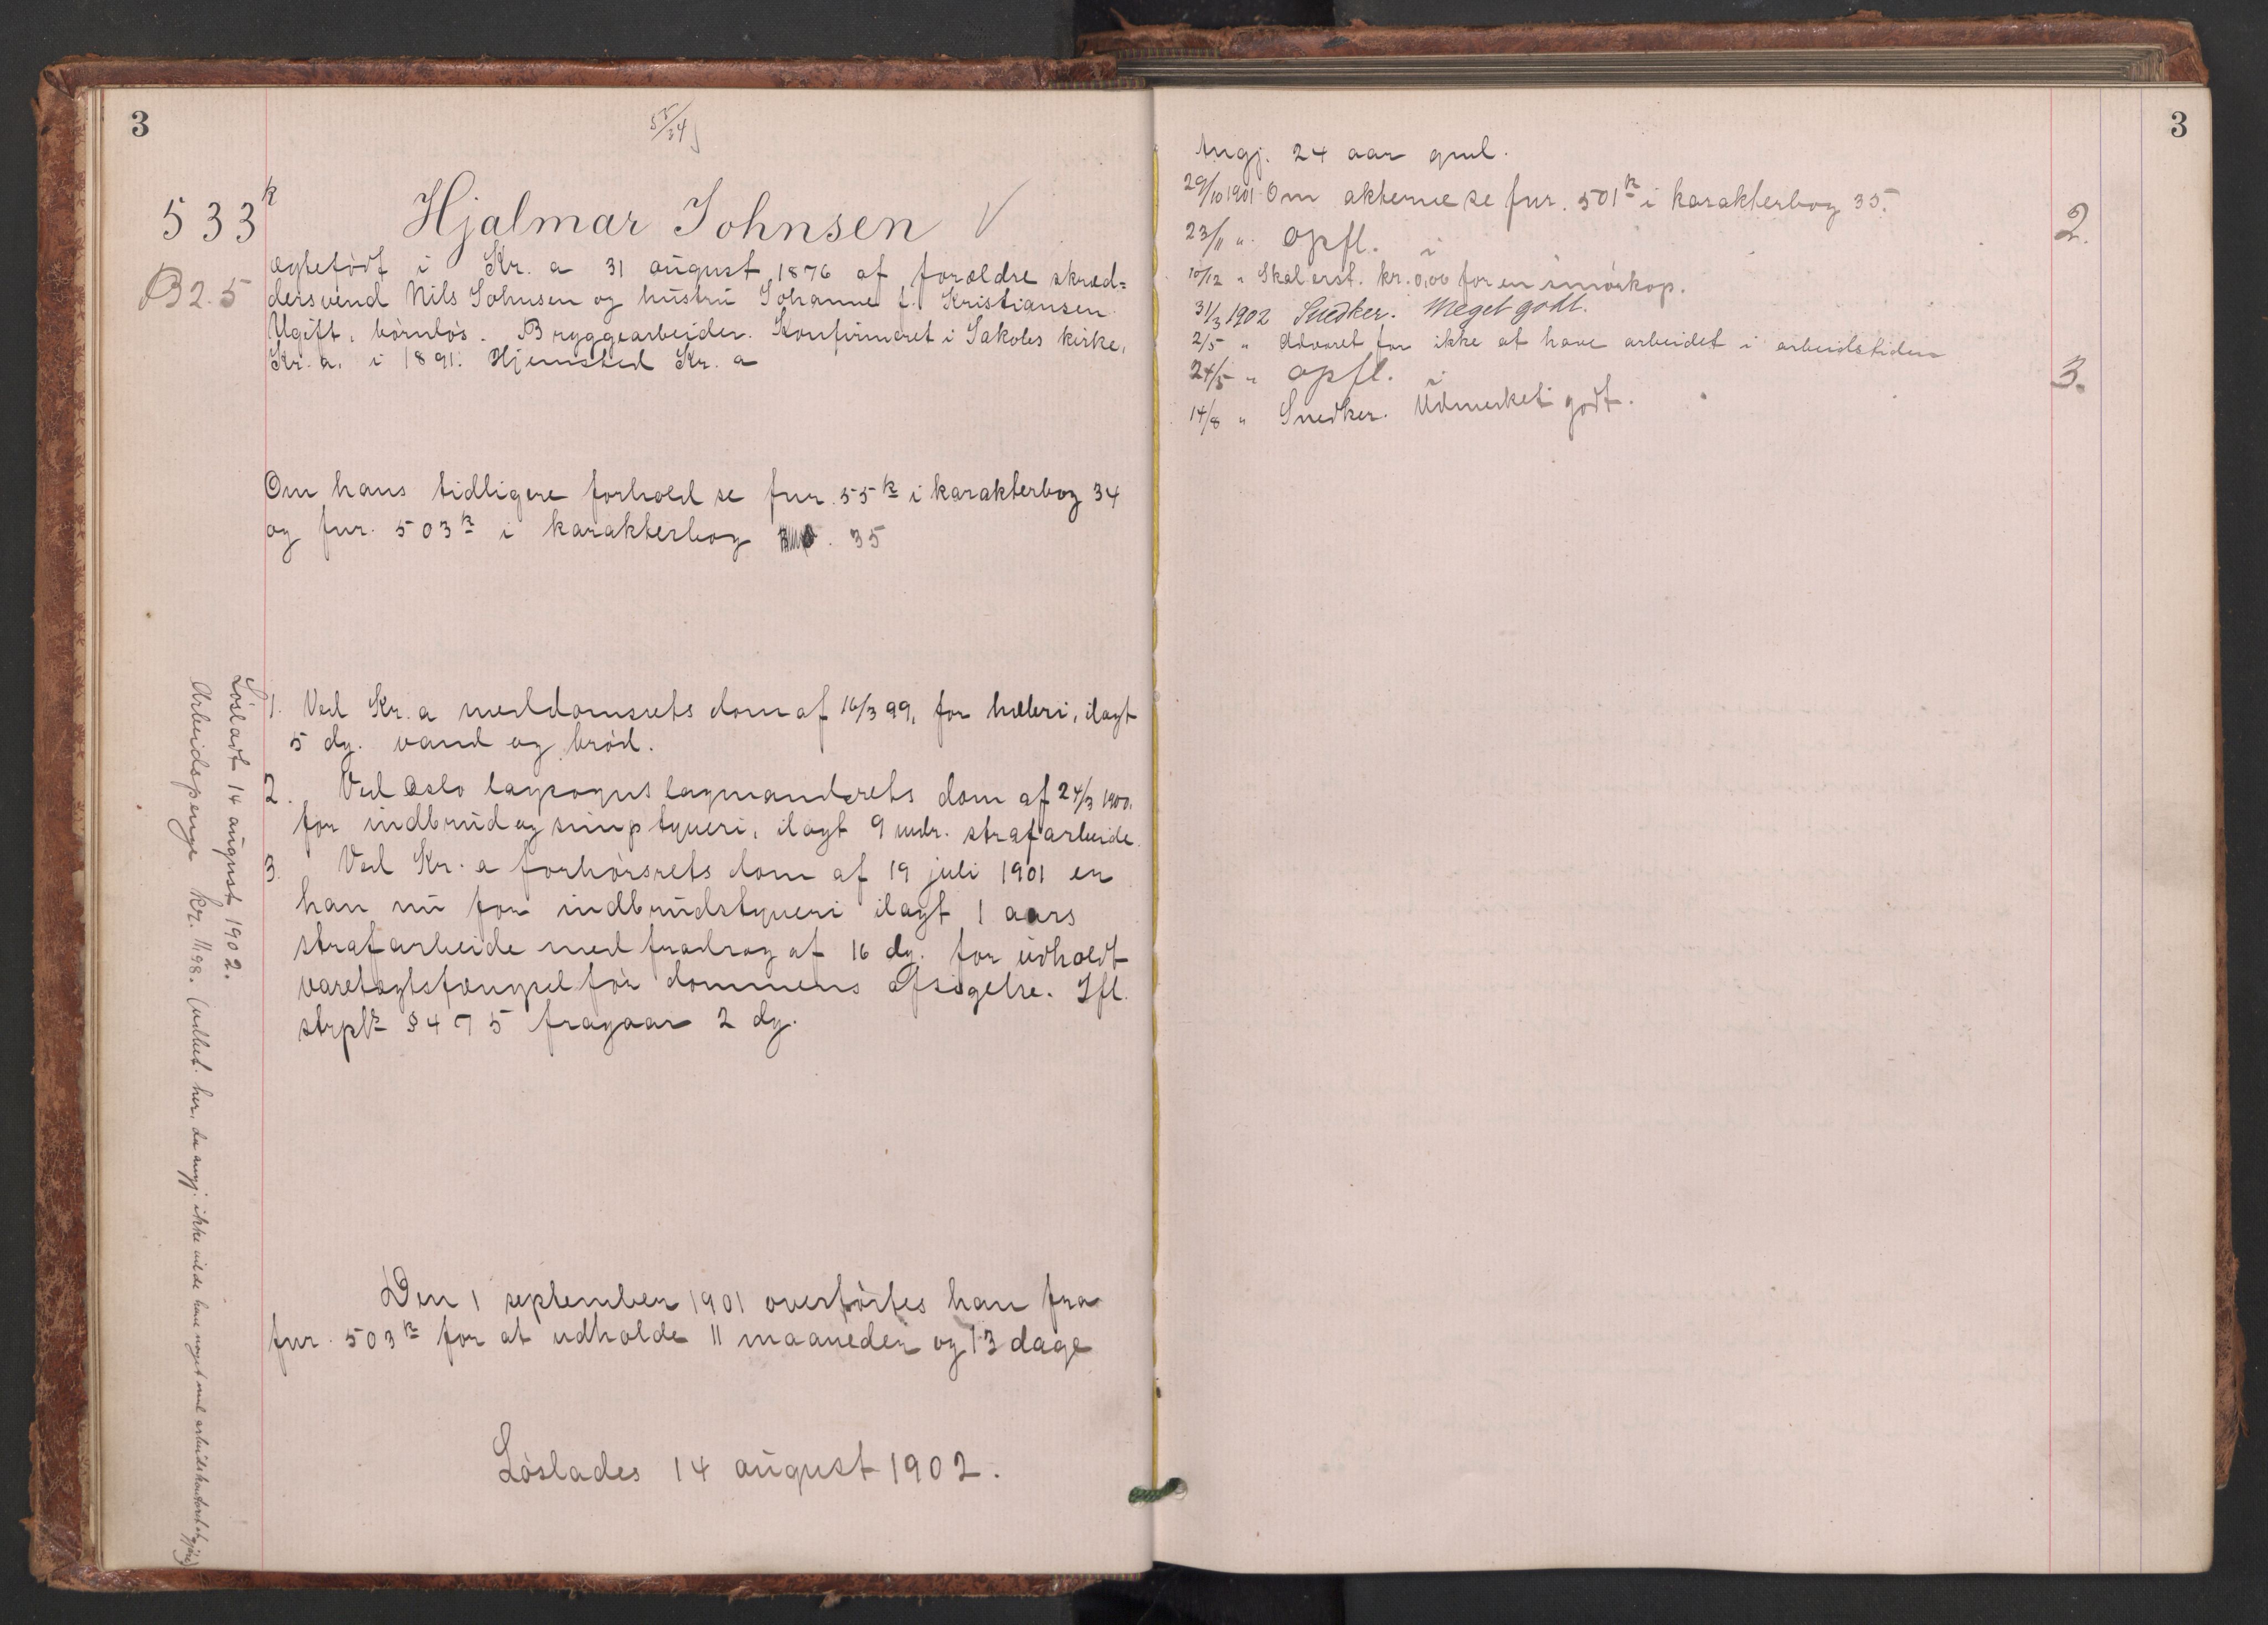 3
55/34
533k
Hjalmar Johnsen V
B 2.5
ægtefödt i Kr. a 31 august 1876 af forældre skræd=
dersvend Nils Johnsen og hustru Johanne f. Kristiansen
Ugift, börnlös. Bryggearbeider. Konfirmeret i Jakobs kirke,
Kr. a. i 1891. Hjemsted Kr. a
Om hans tidligere forhold se fnr. 55k i karakterbog 34
og fnr. 503k i karakterbog 35
1. Ved Kr. a meddomsrets dom af 16/3 99, for hæleri, ilagt
5 dg. vand og bröd.
2. Ved Oslo lagsogns lagmandsrets dom af 24/3 1900,
for indbrud og simp tyveri, ilagt 9 mdr. strafarbeide.
3. Ved Kr. a forhörsrets dom af 19 juli 1901 er
han nu for indbrudstyveri ilagt 1 aars
strafarbeide med fradrag af 16 dg. for udholdt
varetægtsfængsel før dommens afsigelse. Ifl.
strplk § 475 fragaar 2 dg.
Den 1 september 1901 overførtes han fra
fnr. 503k for at udholde 11 maaneder og 13 dage
Löslades 14 august 1902.
Lösladt 14 august 1902.
Arbeidspenge kr. 11.98. (udbet. her, da angj. ikke vilde have noget med arbeidskontoret at gjöre)
3
Angj. 24 aar gml.
29/10 1901 Om akterne se fnr. 501k i karakterbog 35.
23/11 " opfl. i 2.
10/12 " Skal erst. kr. 0,06 for en smörkop.
31/3 1902 Snedker. Meget godt.
2/5 " Advaret for ikke at have arbeidet i arbeidstiden
24/5 " opfl. i 3.
14/8 " Snedker. Udmerket godt.